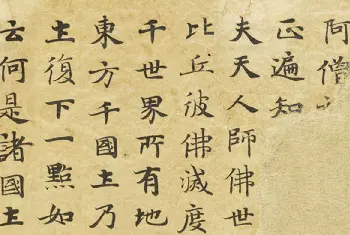 阿僧
正遍知
夫天人師佛世
比丘彼佛滅度
千世界所有地
東方千國土乃
土復下一點如
云何是諸國土